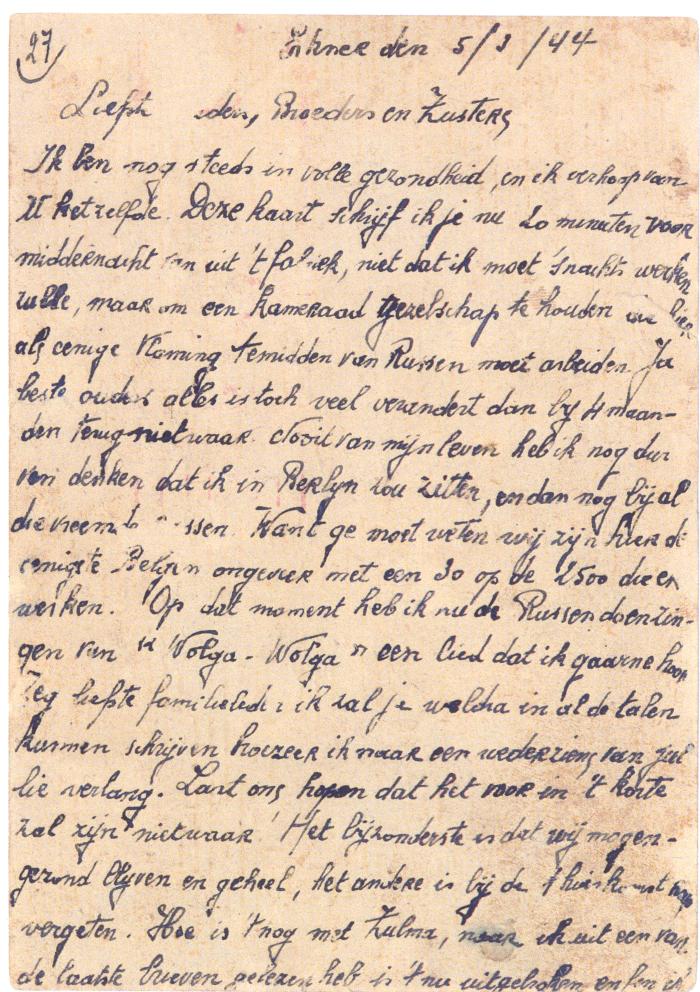 27
Erkner den 5/3/44
Liefste ders, Broeders en Zusters
Ik ben nog steeds in volle gezondheid, en ik verhoop van
U hetzelfde. Deze kaart schrijf ik je nu 20 minuten voor
middernacht van uit 't fabriek, niet dat ik moet 'snachts werken
zulle, maar om een kameraad gezelschap te houden die hier
als eenige Vlaming temidden van Russen moet arbeiden. Ja
beste ouders alles is toch veel verandert dan bij 4 maan-
den terug niet waar. Nooit van mijn leven heb ik nog dur
ven denken dat ik in Berlyn zou zitten, en dan nog bij al
die vreemd ssen. Want ge moet weten wij zijn hier de
eenigste Belgen ongeveer met een 30 op de 2500 die er
werken. Op dat moment heb ik nu de Russen doen zin-
gen van "Wolga-Wolga" een lied dat ik gaarne hoor
Zeg liefste familieleden ik zal je weldra in al de talen
kunnen schrijven hoezeer ik naar een wederziens van jul
lie verlang. Laat ons hopen dat het voor in 't korte
zal zijn nietwaar! Het bijzonderste is dat wij mogen-
gezond blyven en geheel, het andere is bij de thuiskomst
vergeten. Hoe is 't nog met Zulma, naar ik uit een van
de laatste brieven gelezen heb is 't nu uitgesproken en ben ik